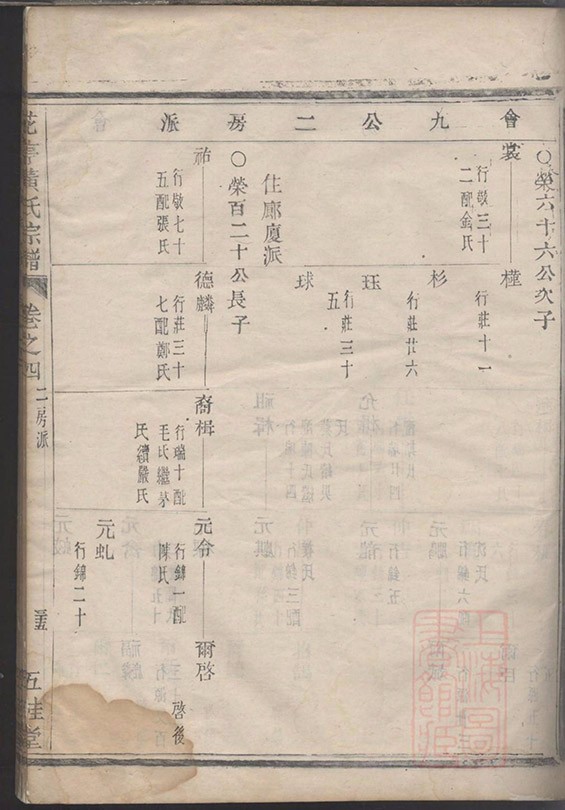 會九公二房派
○榮六十六公次子
裳
行敬三十
二配金氏
橦
行莊十一
杉
行莊廿六
珏
行莊三十
五
球
住廊廈派
○榮百二十公長子
祐
行敬七十
五配張氏
德麟
行莊三十
七配鄭氏
裔楫
行瑞十配
毛氏繼茅
氏續嚴氏
元令
行錦一配
陳氏
元虬
行錦二十
爾啓
啓後
黃氏宗譜
卷之四
二房派
五桂堂